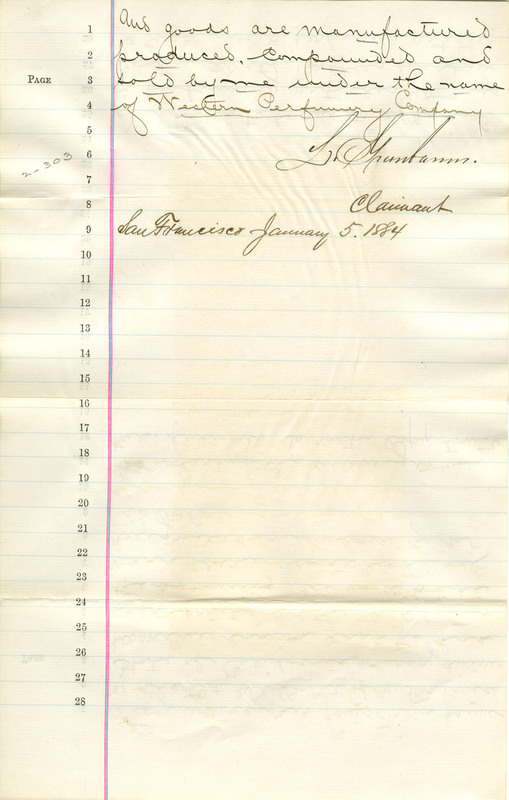 1 And goods are manufactured
2 produced, compounded and
PAGE 3 sold by me under the name
4 of Western Perfumery Company
5
2-303 6 L.
7
8 Claimant
9 San Francisco January 5. 1884
10
11
12
13
14
15
16
17
18
19
20
21
22
23
24
25
26
27
28